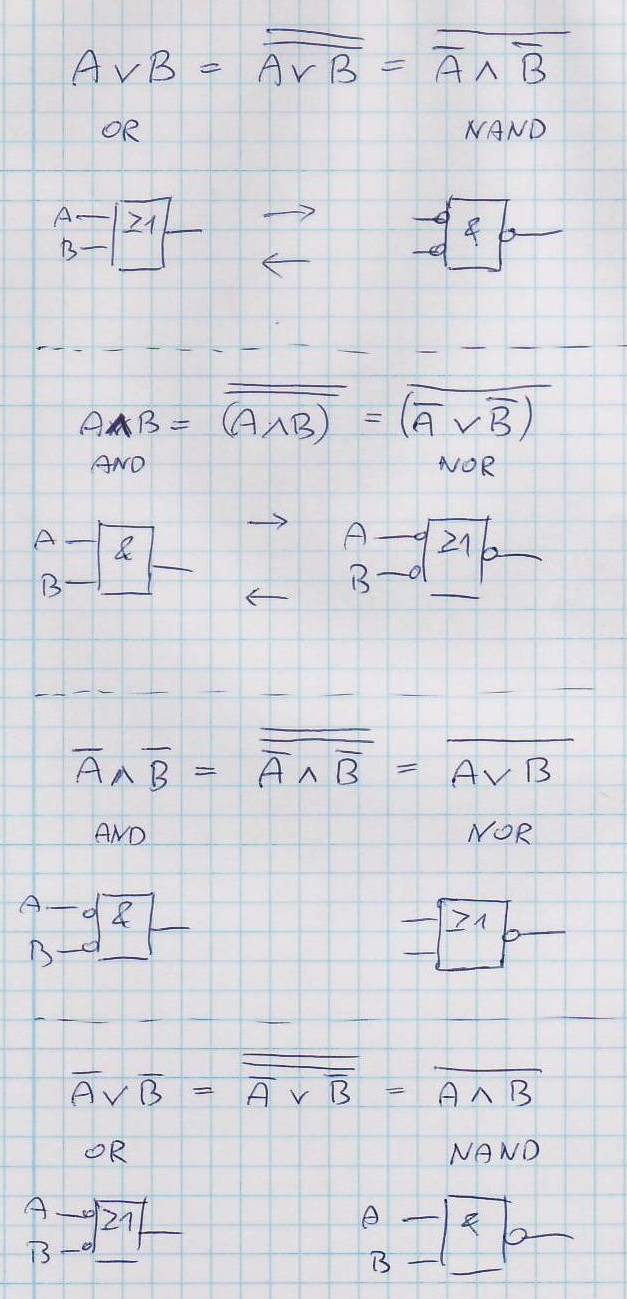 A ∨ B = A̿ ̿∨̿ ̿B̿ = A̅̅ ̅∧̅ ̅B̅̅
OR NAND
A ≥1 → &
B ←
A ∧ B = (̿A̿ ̿∧̿ ̿B̿)̿ = (̅A̅̅ ̅∨̅ ̅B̅̅)̅
AND NOR
A & → A ≥1
B ← B
A̅ ∧ B̅ = A̿̅ ̿∧̿ ̿B̿̅ = A̅ ̅∨̅ ̅B̅
AND NOR
A & ≥1
B
A̅ ∨ B̅ = A̿̅ ̿∨̿ ̿B̿̅ = A̅ ̅∧̅ ̅B̅
OR NAND
A ≥1 A &
B B